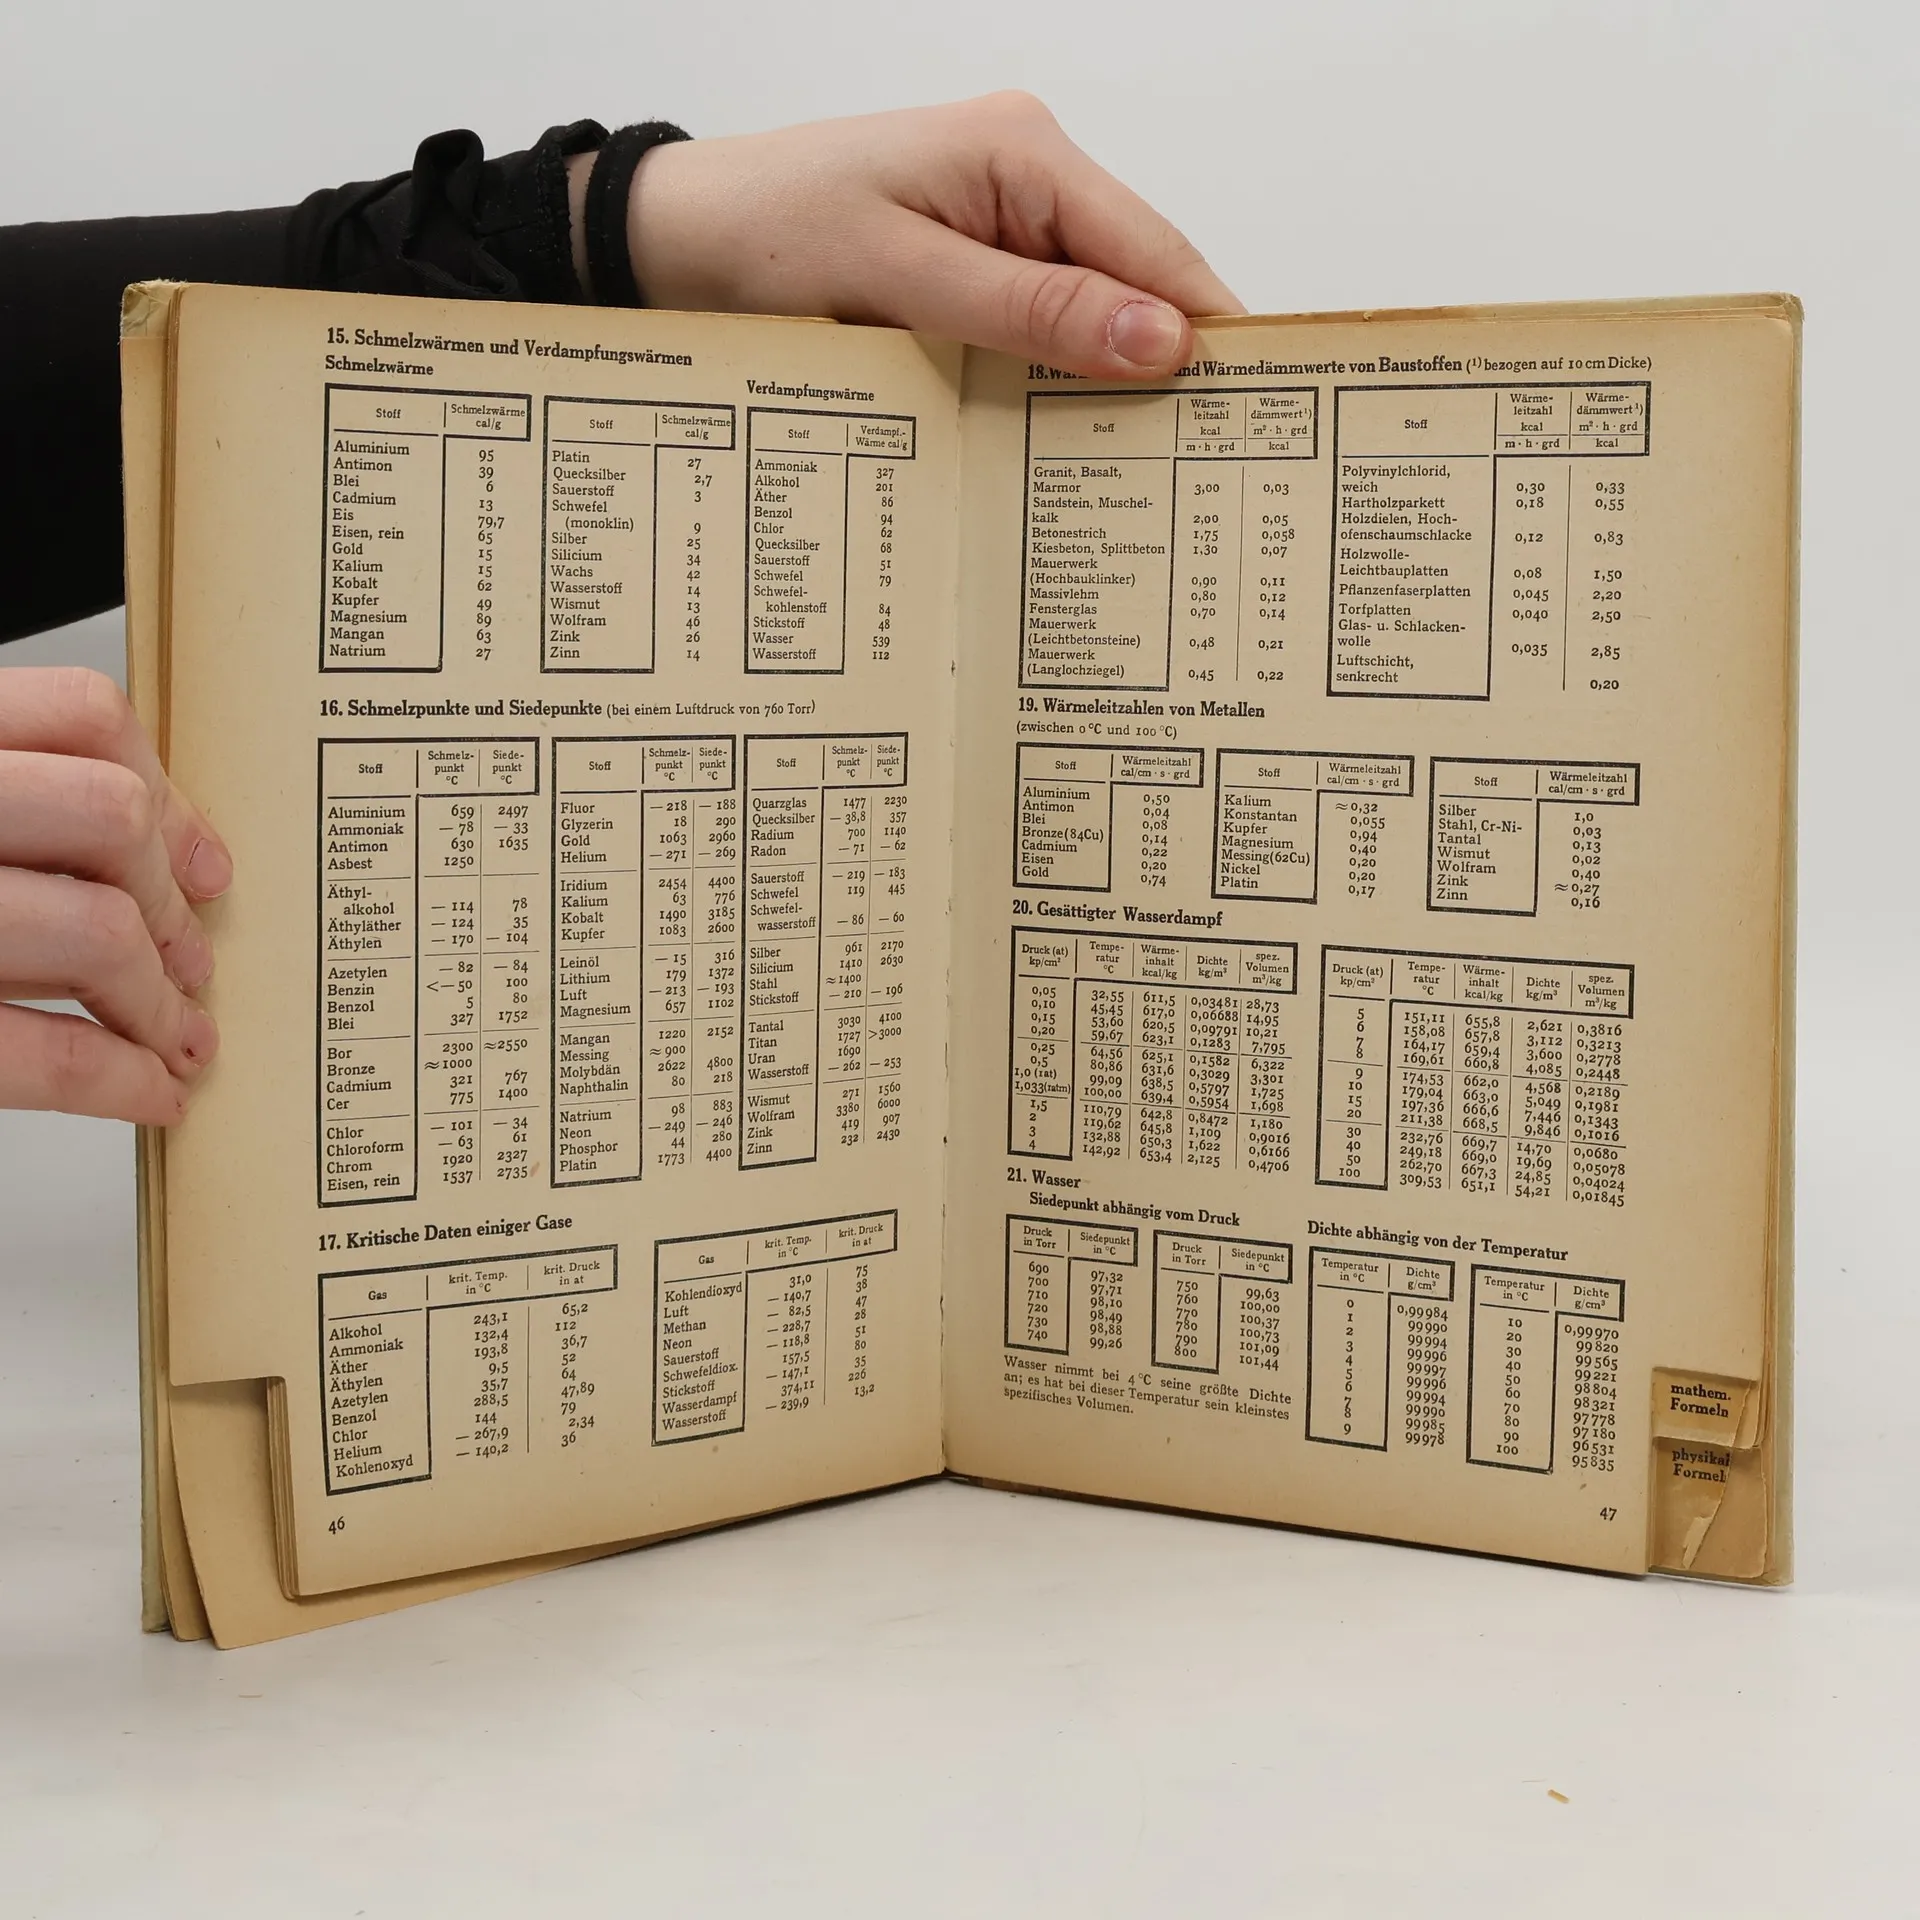 15. Schmelzwärmen und Verdampfungswärmen
Schmelzwärme
Stoff Schmelzwärme cal/g
Aluminium 95
Antimon 39
Blei 6
Cadmium 13
Eis 79,7
Eisen, rein 65
Gold 15
Kalium 15
Kobalt 62
Kupfer 49
Magnesium 89
Mangan 63
Natrium 27
Stoff Schmelzwärme cal/g
Platin 27
Quecksilber 2,7
Sauerstoff 3
Schwefel
(monoklin) 9
Silber 25
Silicium 34
Wachs 42
Wasserstoff 14
Wismut 13
Wolfram 46
Zink 26
Zinn 14
Verdampfungswärme
Stoff Verdampf.-Wärme cal/g
Ammoniak 327
Alkohol 201
Äther 86
Benzol 94
Chlor 62
Quecksilber 68
Sauerstoff 51
Schwefel 79
Schwefel-
kohlenstoff 84
Stickstoff 48
Wasser 539
Wasserstoff 112
16. Schmelzpunkte und Siedepunkte (bei einem Luftdruck von 760 Torr)
Stoff Schmelz-punkt °C Siede-punkt °C
Aluminium 659 2497
Ammoniak — 78 — 33
Antimon 630 1635
Asbest 1250
Äthyl-
alkohol — 114 78
Äthyläther — 124 35
Äthylen — 170 — 104
Azetylen — 82 — 84
Benzin <—50 100
Benzol 5 80
Blei 327 1752
Bor 2300 ≈2550
Bronze ≈1000
Cadmium 321 767
Cer 775 1400
Chlor — 101 — 34
Chloroform — 63 61
Chrom 1920 2327
Eisen, rein 1537 2735
Stoff Schmelz-punkt °C Siede-punkt °C
Fluor — 218 — 188
Glyzerin 18 290
Gold 1063 2960
Helium — 271 — 269
Iridium 2454 4400
Kalium 63 776
Kobalt 1490 3185
Kupfer 1083 2600
Leinöl — 15 316
Lithium 179 1372
Luft — 213 — 193
Magnesium 657 1102
Mangan 1220 2152
Messing ≈ 900
Molybdän 2622 4800
Naphthalin 80 218
Natrium 98 883
Neon — 249 — 246
Phosphor 44 280
Platin 1773 4400
Stoff Schmelz-punkt °C Siede-punkt °C
Quarzglas 1477 2230
Quecksilber — 38,8 357
Radium 700 1140
Radon — 71 — 62
Sauerstoff — 219 — 183
Schwefel 119 445
Schwefel-
wasserstoff — 86 — 60
Silber 961 2170
Silicium 1410 2630
Stahl ≈1400
Stickstoff — 210 — 196
Tantal 3030 4100
Titan 1727 >3000
Uran 1690
Wasserstoff — 262 — 253
Wismut 271 1560
Wolfram 3380 6000
Zink 419 907
Zinn 232 2430
17. Kritische Daten einiger Gase
Gas krit. Temp. in °C krit. Druck in at
Alkohol 243,1 65,2
Ammoniak 132,4 112
Äther 193,8 36,7
Äthylen 9,5 52
Azetylen 35,7 64
Benzol 288,5 47,89
Chlor 144 79
Helium — 267,9 2,34
Kohlenoxyd — 140,2 36
Gas krit. Temp. in °C krit. Druck in at
Kohlendioxyd 31,0 75
Luft — 140,7 38
Methan — 82,5 47
Neon — 228,7 28
Sauerstoff — 118,8 51
Schwefeldiox. 157,5 80
Stickstoff — 147,1 35
Wasserdampf 374,11 226
Wasserstoff — 239,9 13,2
46
18. und Wärmedämmwerte von Baustoffen (¹) bezogen auf 10 cm Dicke)
Stoff Wärme-leitzahl kcal m · h · grd Wärme-dämmwert¹) m² · h · grd kcal
Granit, Basalt,
Marmor 3,00 0,03
Sandstein, Muschel-
kalk 2,00 0,05
Betonestrich 1,75 0,058
Kiesbeton, Splittbeton 1,30 0,07
Mauerwerk
(Hochbauklinker) 0,90 0,11
Massivlehm 0,80 0,12
Fensterglas 0,70 0,14
Mauerwerk
(Leichtbetonsteine) 0,48 0,21
Mauerwerk
(Langlochziegel) 0,45 0,22
Stoff Wärme-leitzahl kcal m · h · grd Wärme-dämmwert¹) m² · h · grd kcal
Polyvinylchlorid,
weich 0,30 0,33
Hartholzparkett 0,18 0,55
Holzdielen, Hoch-
ofenschaumschlacke 0,12 0,83
Holzwolle-
Leichtbauplatten 0,08 1,50
Pflanzenfaserplatten 0,045 2,20
Torfplatten 0,040 2,50
Glas- u. Schlacken-
wolle 0,035 2,85
Luftschicht,
senkrecht 0,20
19. Wärmeleitzahlen von Metallen
(zwischen 0 °C und 100 °C)
Stoff Wärmeleitzahl cal/cm · s · grd
Aluminium 0,50
Antimon 0,04
Blei 0,08
Bronze(84Cu) 0,14
Cadmium 0,22
Eisen 0,20
Gold 0,74
Stoff Wärmeleitzahl cal/cm · s · grd
Kalium ≈0,32
Konstantan 0,055
Kupfer 0,94
Magnesium 0,40
Messing(62Cu) 0,20
Nickel 0,20
Platin 0,17
Stoff Wärmeleitzahl cal/cm · s · grd
Silber 1,0
Stahl, Cr-Ni- 0,03
Tantal 0,13
Wismut 0,02
Wolfram 0,40
Zink ≈0,27
Zinn 0,16
20. Gesättigter Wasserdampf
Druck (at) kp/cm² Tempe-ratur °C Wärme-inhalt kcal/kg Dichte kg/m³ spez. Volumen m³/kg
0,05 32,55 611,5 0,03481 28,73
0,10 45,45 617,0 0,06688 14,95
0,15 53,60 620,5 0,09791 10,21
0,20 59,67 623,1 0,1283 7,795
0,25 64,56 625,1 0,1582 6,322
0,5 80,86 631,6 0,3029 3,301
1,0 (1at) 99,09 638,5 0,5797 1,725
1,033(1atm) 100,00 639,4 0,5954 1,698
1,5 110,79 642,8 0,8472 1,180
2 119,62 645,8 1,109 0,9016
3 132,88 650,3 1,622 0,6166
4 142,92 653,4 2,125 0,4706
Druck (at) kp/cm² Tempe-ratur °C Wärme-inhalt kcal/kg Dichte kg/m³ spez. Volumen m³/kg
5 151,11 655,8 2,621 0,3816
6 158,08 657,8 3,112 0,3213
7 164,17 659,4 3,600 0,2778
8 169,61 660,8 4,085 0,2448
9 174,53 662,0 4,568 0,2189
10 179,04 663,0 5,049 0,1981
15 197,36 666,6 7,446 0,1343
20 211,38 668,5 9,846 0,1016
30 232,76 669,7 14,70 0,0680
40 249,18 669,0 19,69 0,05078
50 262,70 667,3 24,85 0,04024
100 309,53 651,1 54,21 0,01845
21. Wasser
Siedepunkt abhängig vom Druck
Druck in Torr Siedepunkt in °C
690 97,32
700 97,71
710 98,10
720 98,49
730 98,88
740 99,26
Druck in Torr Siedepunkt in °C
750 99,63
760 100,00
770 100,37
780 100,73
790 101,09
800 101,44
Wasser nimmt bei 4 °C seine größte Dichte
an; es hat bei dieser Temperatur sein kleinstes
spezifisches Volumen.
Dichte abhängig von der Temperatur
Temperatur in °C Dichte g/cm³
0 0,99984
1 99990
2 99994
3 99996
4 99997
5 99996
6 99994
7 99990
8 99985
9 99978
Temperatur in °C Dichte g/cm³
10 0,99970
20 99820
30 99565
40 99221
50 98804
60 98321
70 97778
80 97180
90 96531
100 95835
mathem.
Formeln
physikal
Formel
47